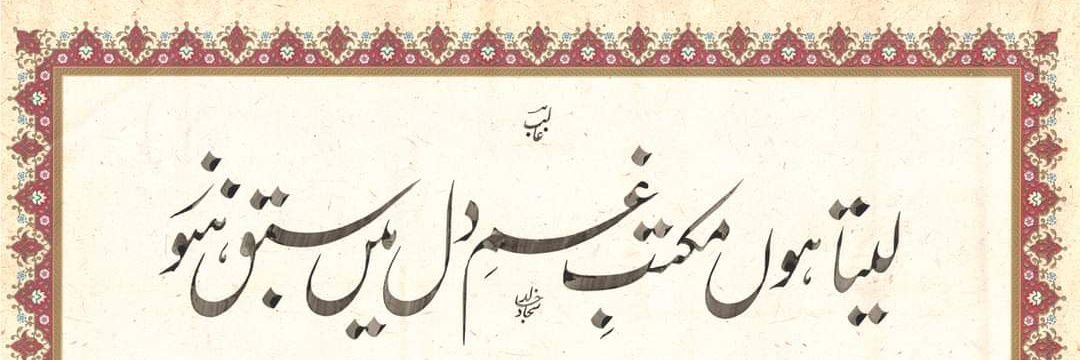 غالب
لیتا ہوں مکتبِ غمِ دل میں سبق ہنوز
خالد سجاد